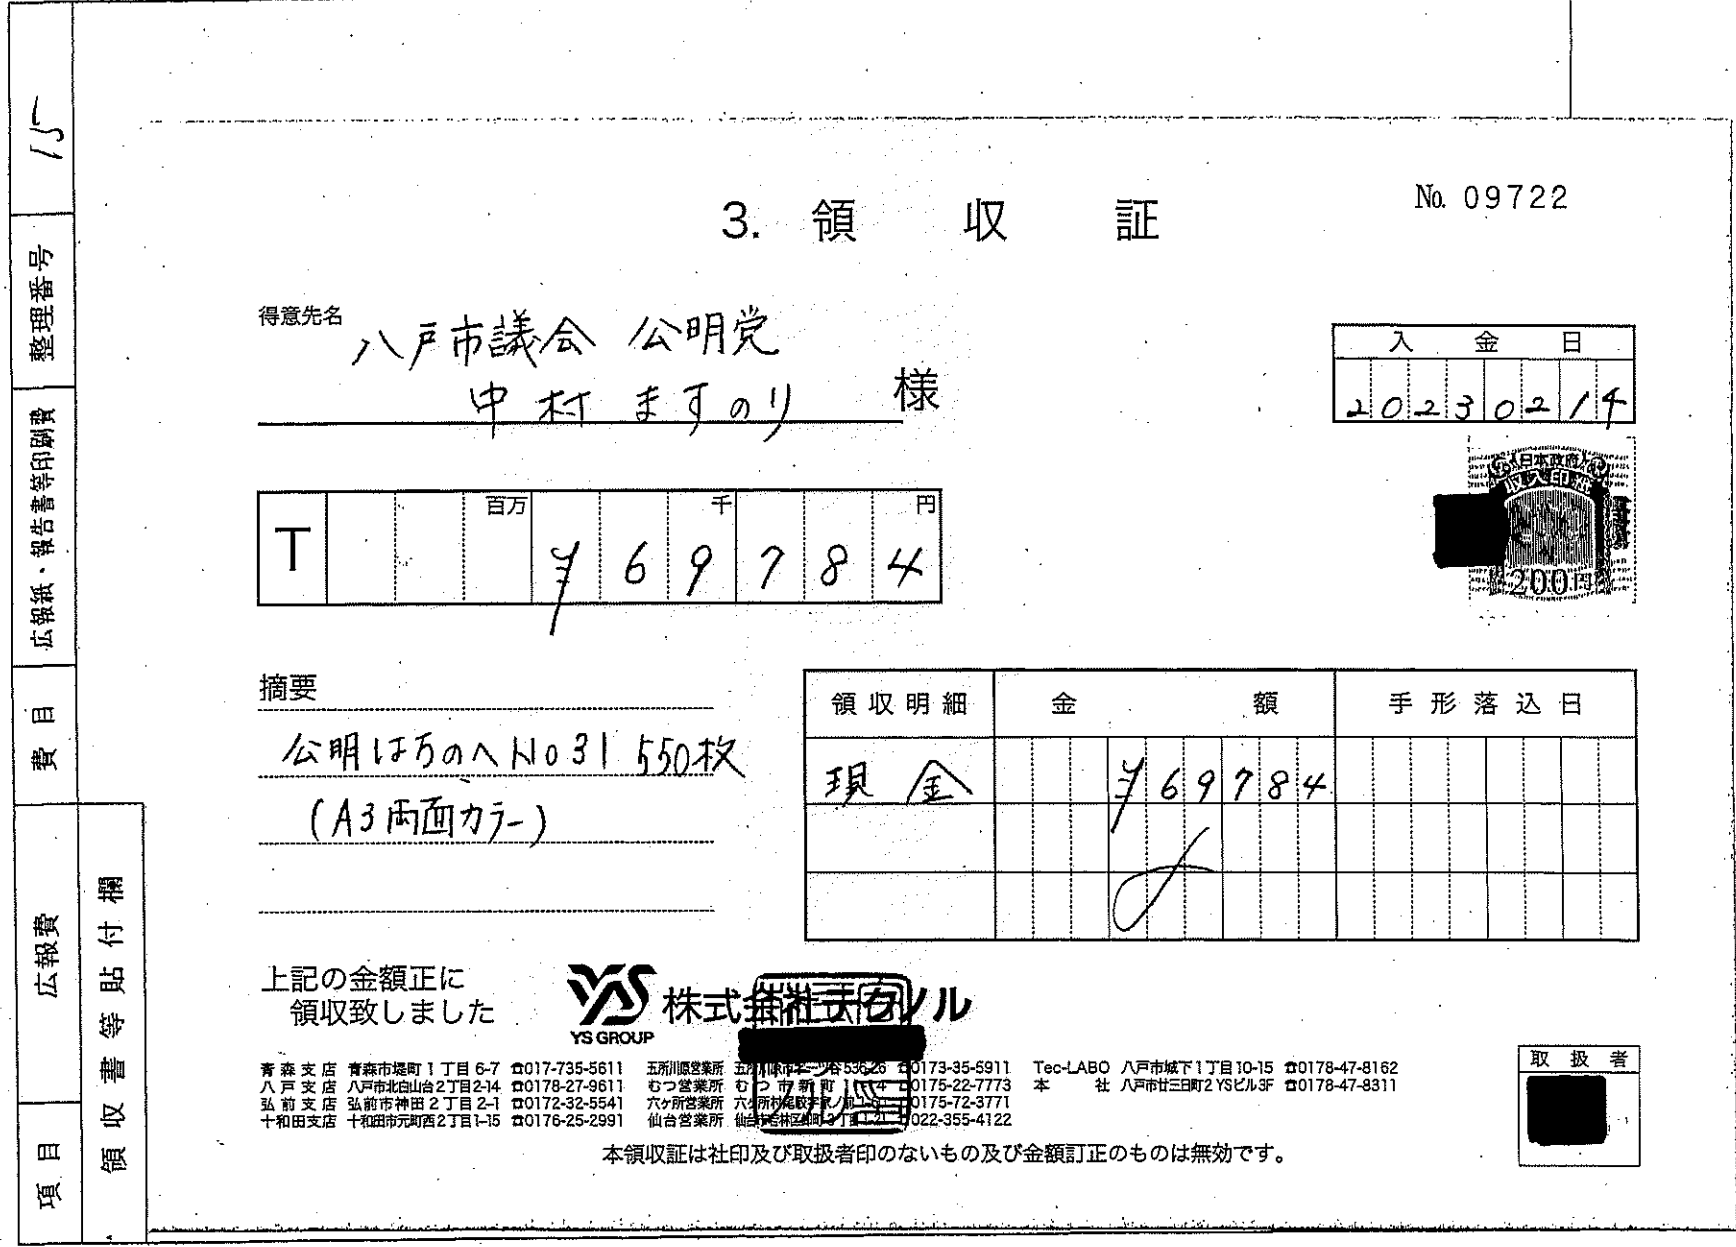 項目
広報費
費目
広報紙・報告書等印刷費
整理番号
15
領収書等貼付欄
3. 領収証
No. 09722
得意先名
八戸市議会 公明党
中村 ますのり 様
入金日
20230214
日本政府
収入印紙
200円
百万 千 円
T ¥69784
摘要
公明はちのへ No31 550枚
(A3両面カラー)
領収明細 金額 手形落込日
現金 ¥69784
上記の金額正に
領収致しました
YS GROUP
株式会社テクノル
青森支店 青森市堤町1丁目6-7 ☎017-735-5611
八戸支店 八戸市北白山台2丁目2-14 ☎0178-27-9611
弘前支店 弘前市神田2丁目2-1 ☎0172-32-5541
十和田支店 十和田市元町西2丁目1-15 ☎0176-25-2991
五所川原営業所 ☎0173-35-5911
むつ営業所 むつ市新町 ☎0175-22-7773
六ケ所営業所 ☎0175-72-3771
仙台営業所 ☎022-355-4122
Tec-LABO 八戸市城下1丁目10-15 ☎0178-47-8162
本社 八戸市廿三日町2 YSビル3F ☎0178-47-8311
取扱者
本領収証は社印及び取扱者印のないもの及び金額訂正のものは無効です。